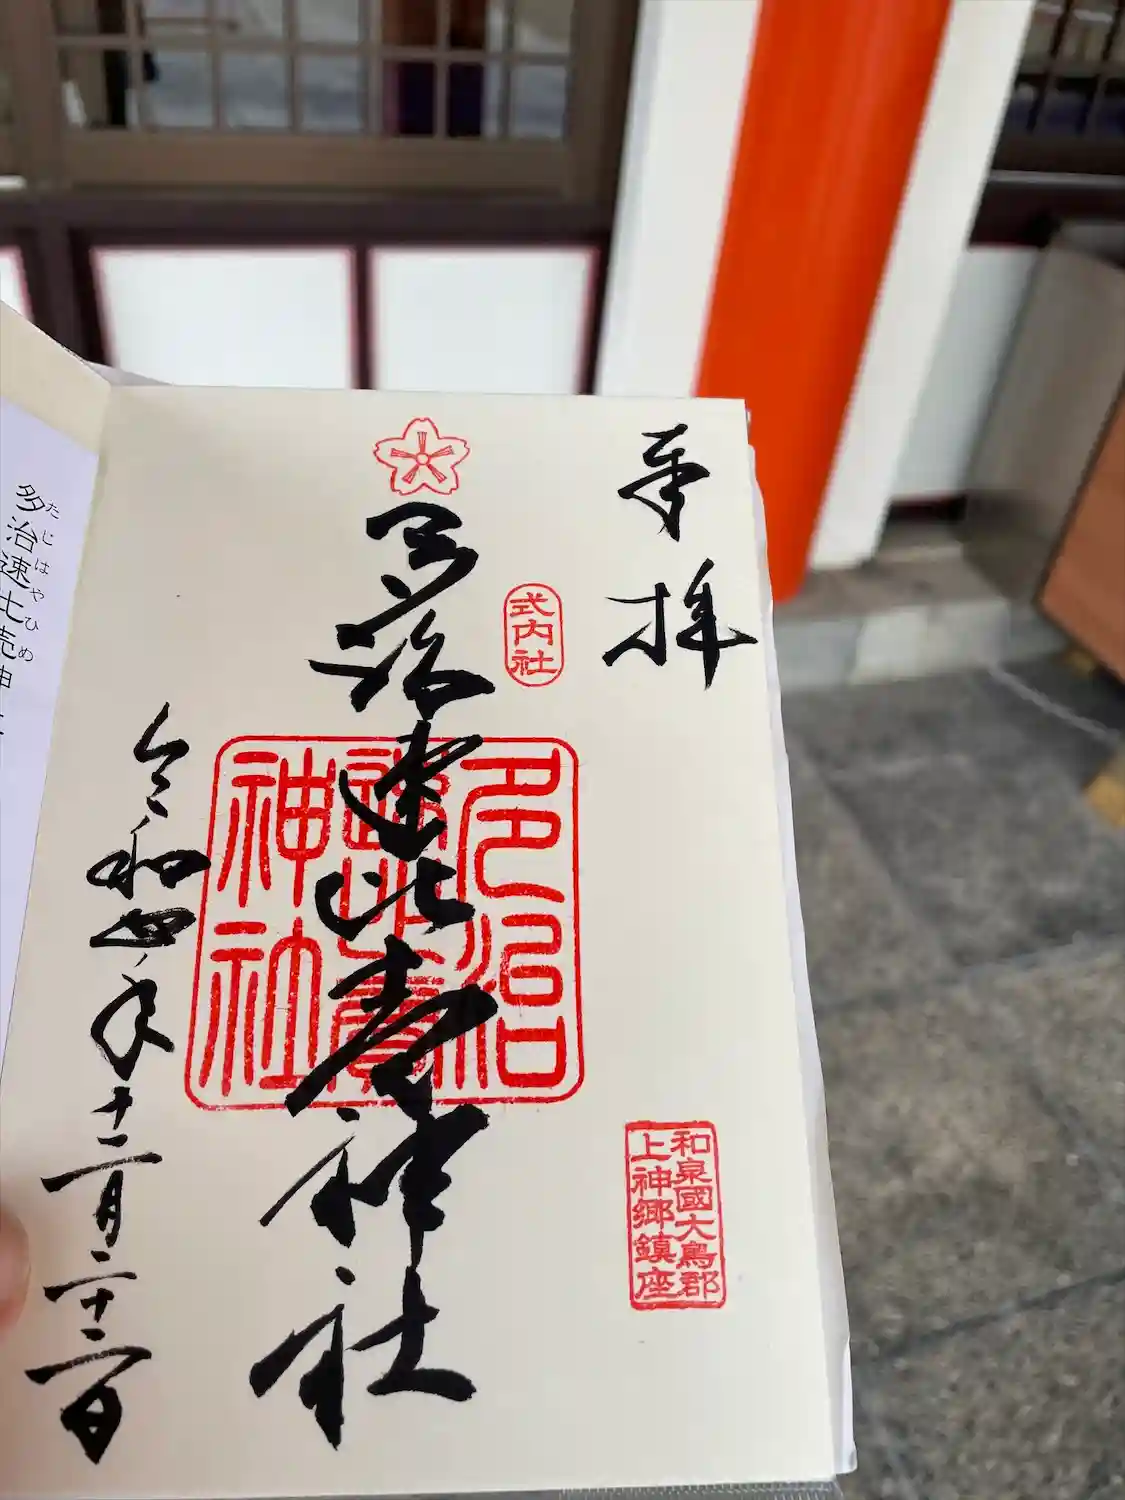 奉拝
和泉國大鳥郡
上神郷鎮座
式内社
多治速比売神社
多治速比賣神社
令和四年十二月二十二日
多治速比売神社
たじはやひめ